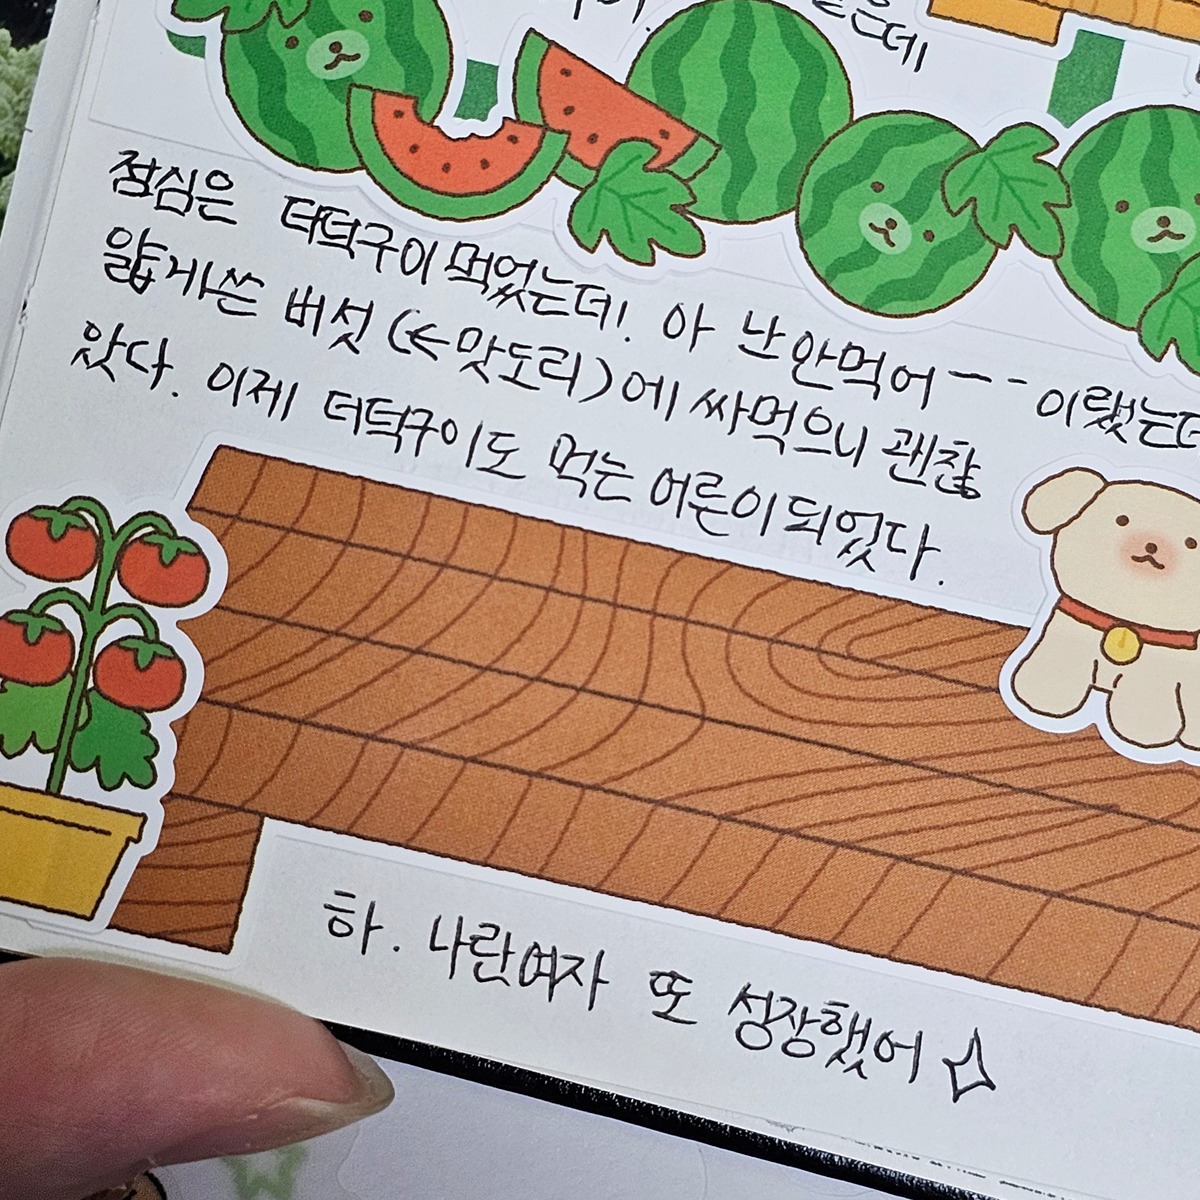 점심은 더덕구이 먹었는데! 아 난 안먹어 -- 이랬는데
얇게 쓴 버섯(←맛도리)에 싸먹으니 괜찮
았다. 이제 더덕구이도 먹는 어른이 되었다.
하. 나란여자 또 성장했어